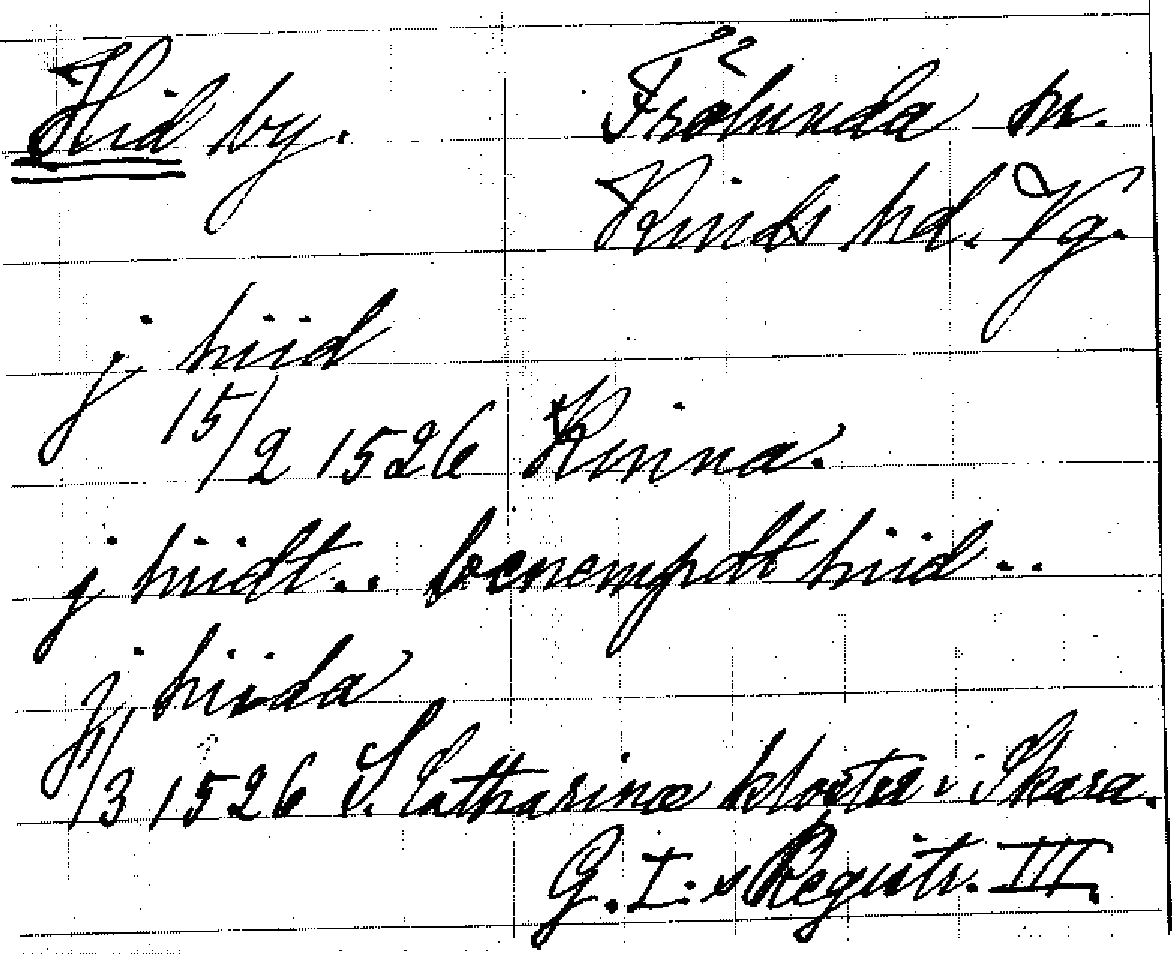 Hid by. Frölunda sn.
Kinds hd. Vg.
j hiid
15/2 1526 Kinna.
j hiidt.. benempdt hiid..
j hiida
1/3 1526 S. Catharinæ kloster i Skara.
G. I:s Registr. III.